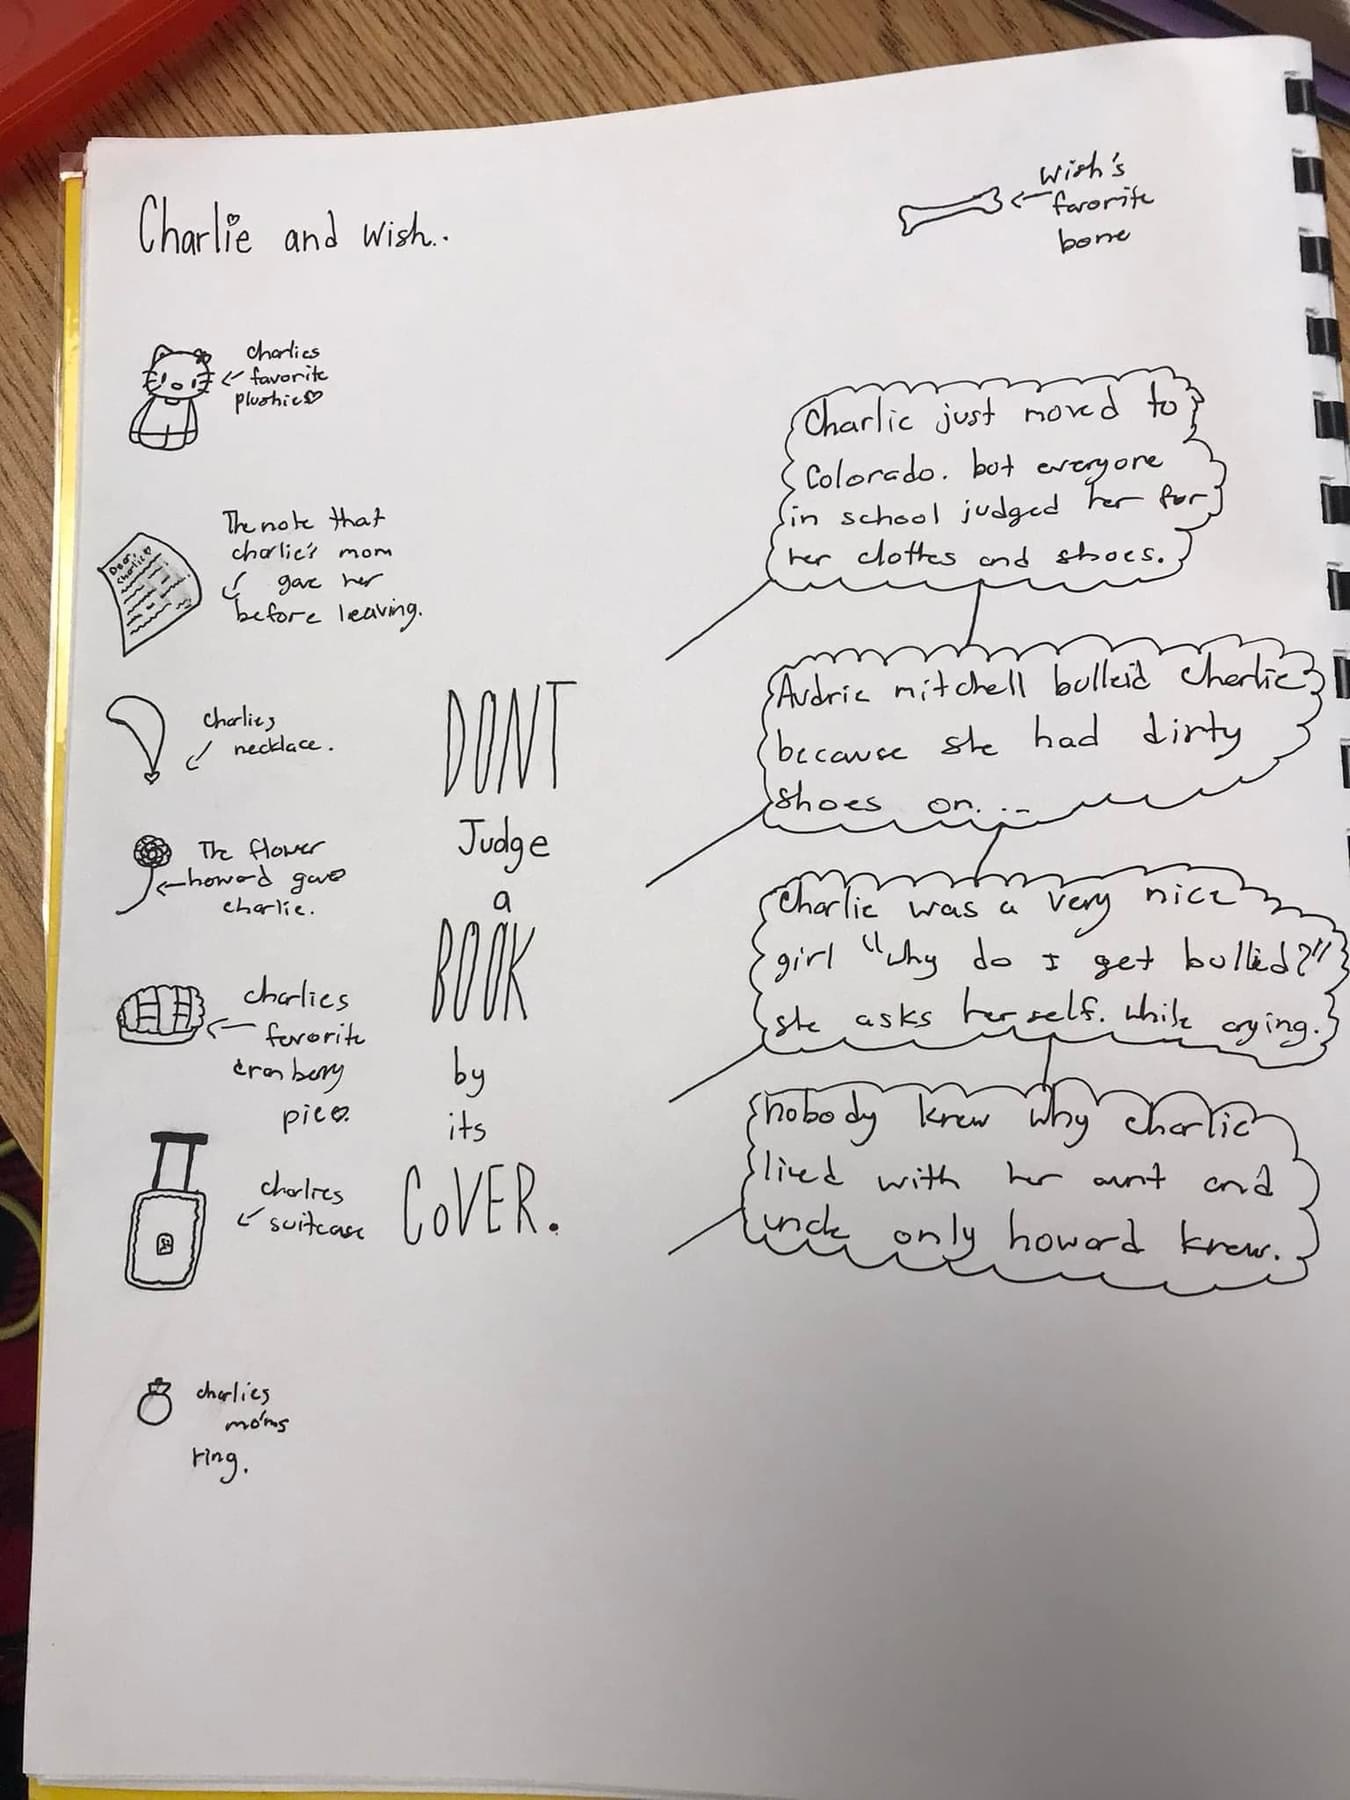 Charlie and wish..
wish's
favorite
bone
charlies
favorite
plushie
The note that
charlie's mom
gave her
before leaving.
Dear,
Charlie
charlies
necklace.
The flower
howard gave
charlie.
charlies
favorite
cranberry
pie.
charlies
suitcase
charlies
moms
ring.
DONT
Judge
a
BOOK
by
its
COVER.
Charlie just moved to
Colorado. but everyone
in school judged her for
her clothes and shoes.
Audrie mitchell bulleid Charlie
because she had dirty
shoes on...
Charlie was a very nice
girl "why do I get bullied?"
she asks herself. while crying.
nobody knew why charlie
lived with her aunt and
uncle only howard knew.